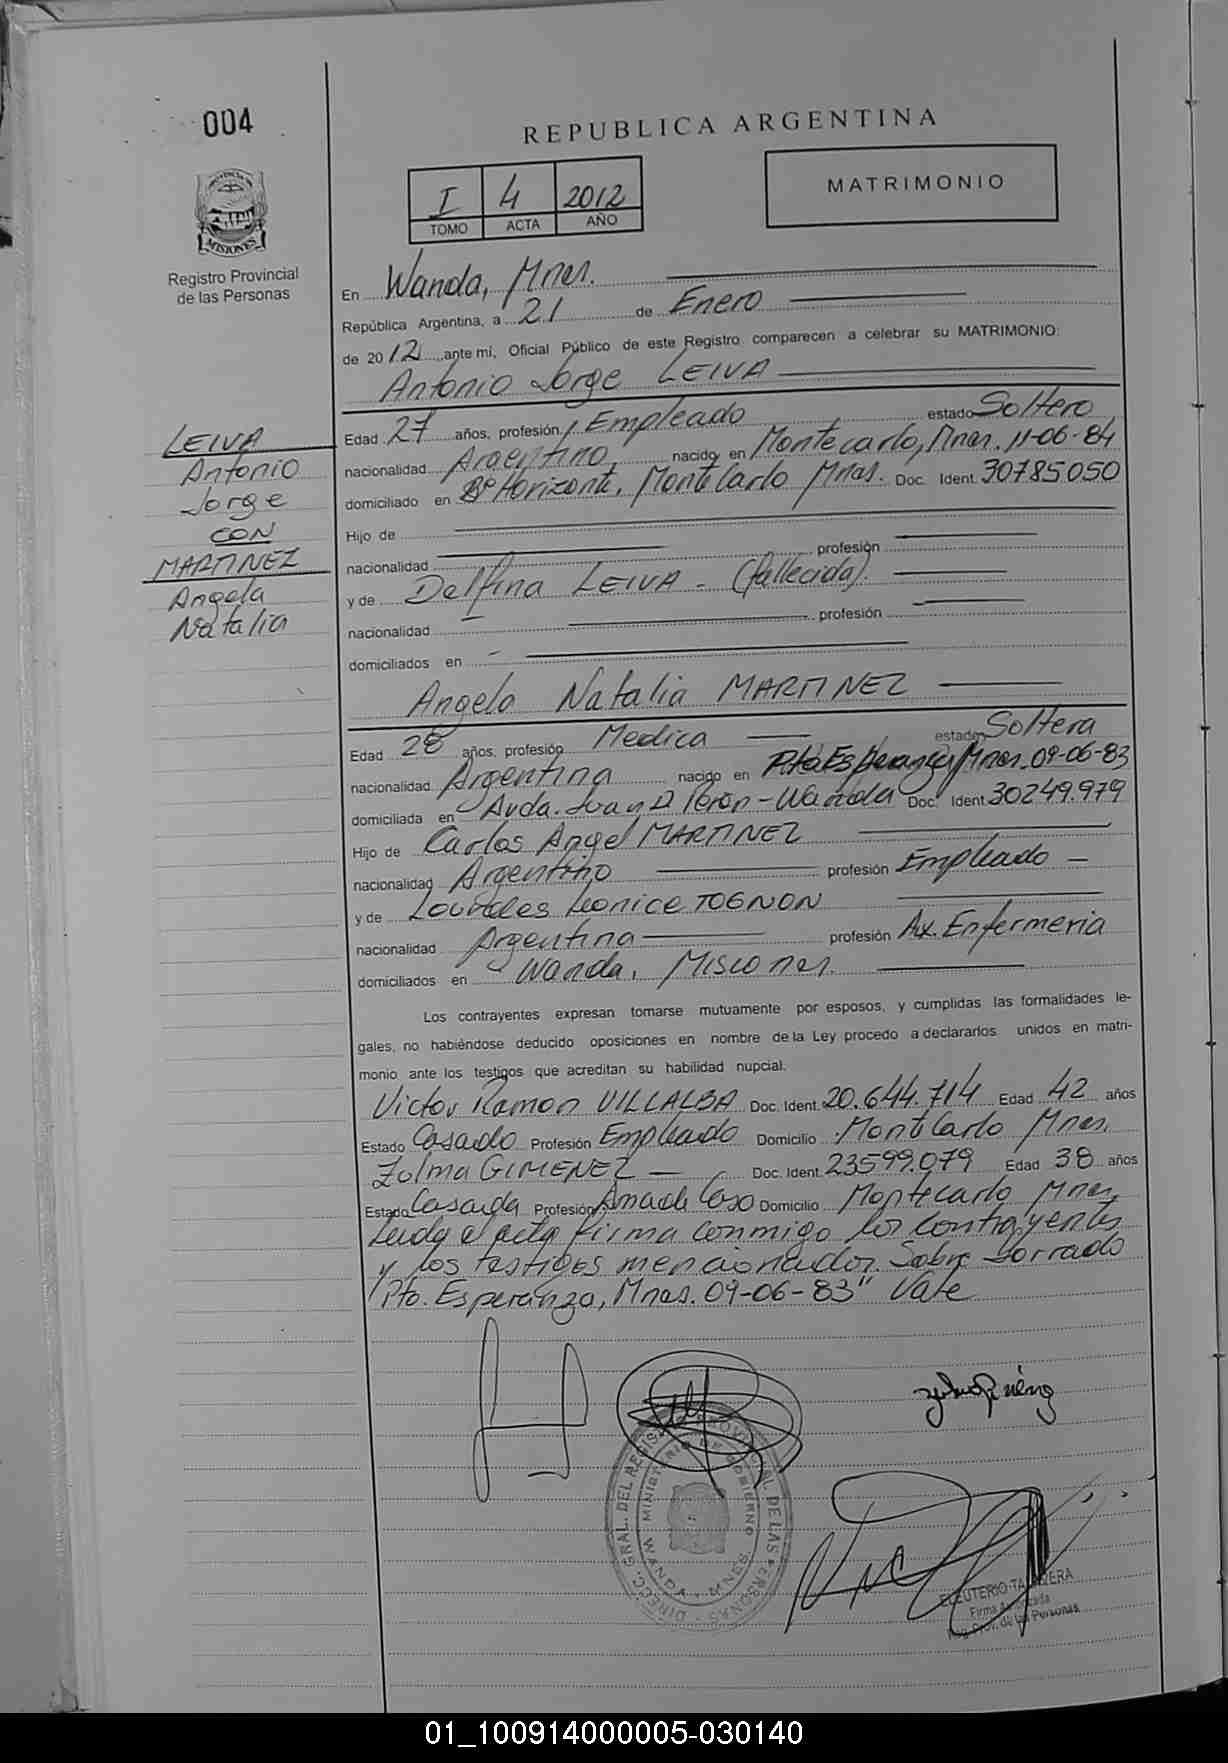 004
REPUBLICA ARGENTINA
I 4 2012
TOMO ACTA AÑO
MATRIMONIO
PROVINCIA DE
MISIONES
Registro Provincial
de las Personas
En Wanda, Mnes.
República Argentina, a 21 de Enero
de 2012 ante mí, Oficial Público de este Registro comparecen a celebrar su MATRIMONIO:
Antonio Jorge LEIVA
Edad 27 años, profesión Empleado estado Soltero
nacionalidad Argentino nacido en Montecarlo, Mnes. 11-06-84
domiciliado en Bº Horizonte, Montecarlo Mnes. Doc. Ident. 30785050
Hijo de
nacionalidad profesión
y de Delfina LEIVA - (fallecida).
nacionalidad profesión
domiciliados en
LEIVA
Antonio
Jorge
CON
MARTINEZ
Angela
Natalia
Angela Natalia MARTINEZ
Edad 28 años, profesión Medica estado Soltera
nacionalidad Argentina nacido en Pto Esperanza, Mnes. 09-06-83
domiciliada en Avda. Juan D Perón - Wanda Doc. Ident 30249.979
Hijo de Carlos Angel MARTINEZ
nacionalidad Argentino profesión Empleado
y de Lourdes Leonice TOGNON
nacionalidad Argentina profesión Ax. Enfermeria
domiciliados en Wanda, Misiones.
Los contrayentes expresan tomarse mutuamente por esposos, y cumplidas las formalidades le-
gales, no habiéndose deducido oposiciones en nombre de la Ley procedo a declararlos unidos en matri-
monio ante los testigos que acreditan su habilidad nupcial.
Victor Ramon VILLALBA Doc. Ident. 20.644.714 Edad 42 años
Estado Casado Profesión Empleado Domicilio Montecarlo Mnes.
Zulma GIMENEZ Doc. Ident. 23599.079 Edad 38 años
Estado Casada Profesión Ama de Casa Domicilio Montecarlo Mnes.
Leida el acta firma conmigo los contrayentes
y los testigos mencionados. Sobre borrado
"Pto. Esperanza, Mnes. 09-06-83" Vale
DIREC. GRAL. DEL REGISTRO PROVINCIAL DE LAS PERSONAS
MINISTERIO DE GOBIERNO
WANDA - MNES.
ELEUTERIO TALAVERA
Firma Autorizada
Reg. Prov. de las Personas
01_100914000005-030140